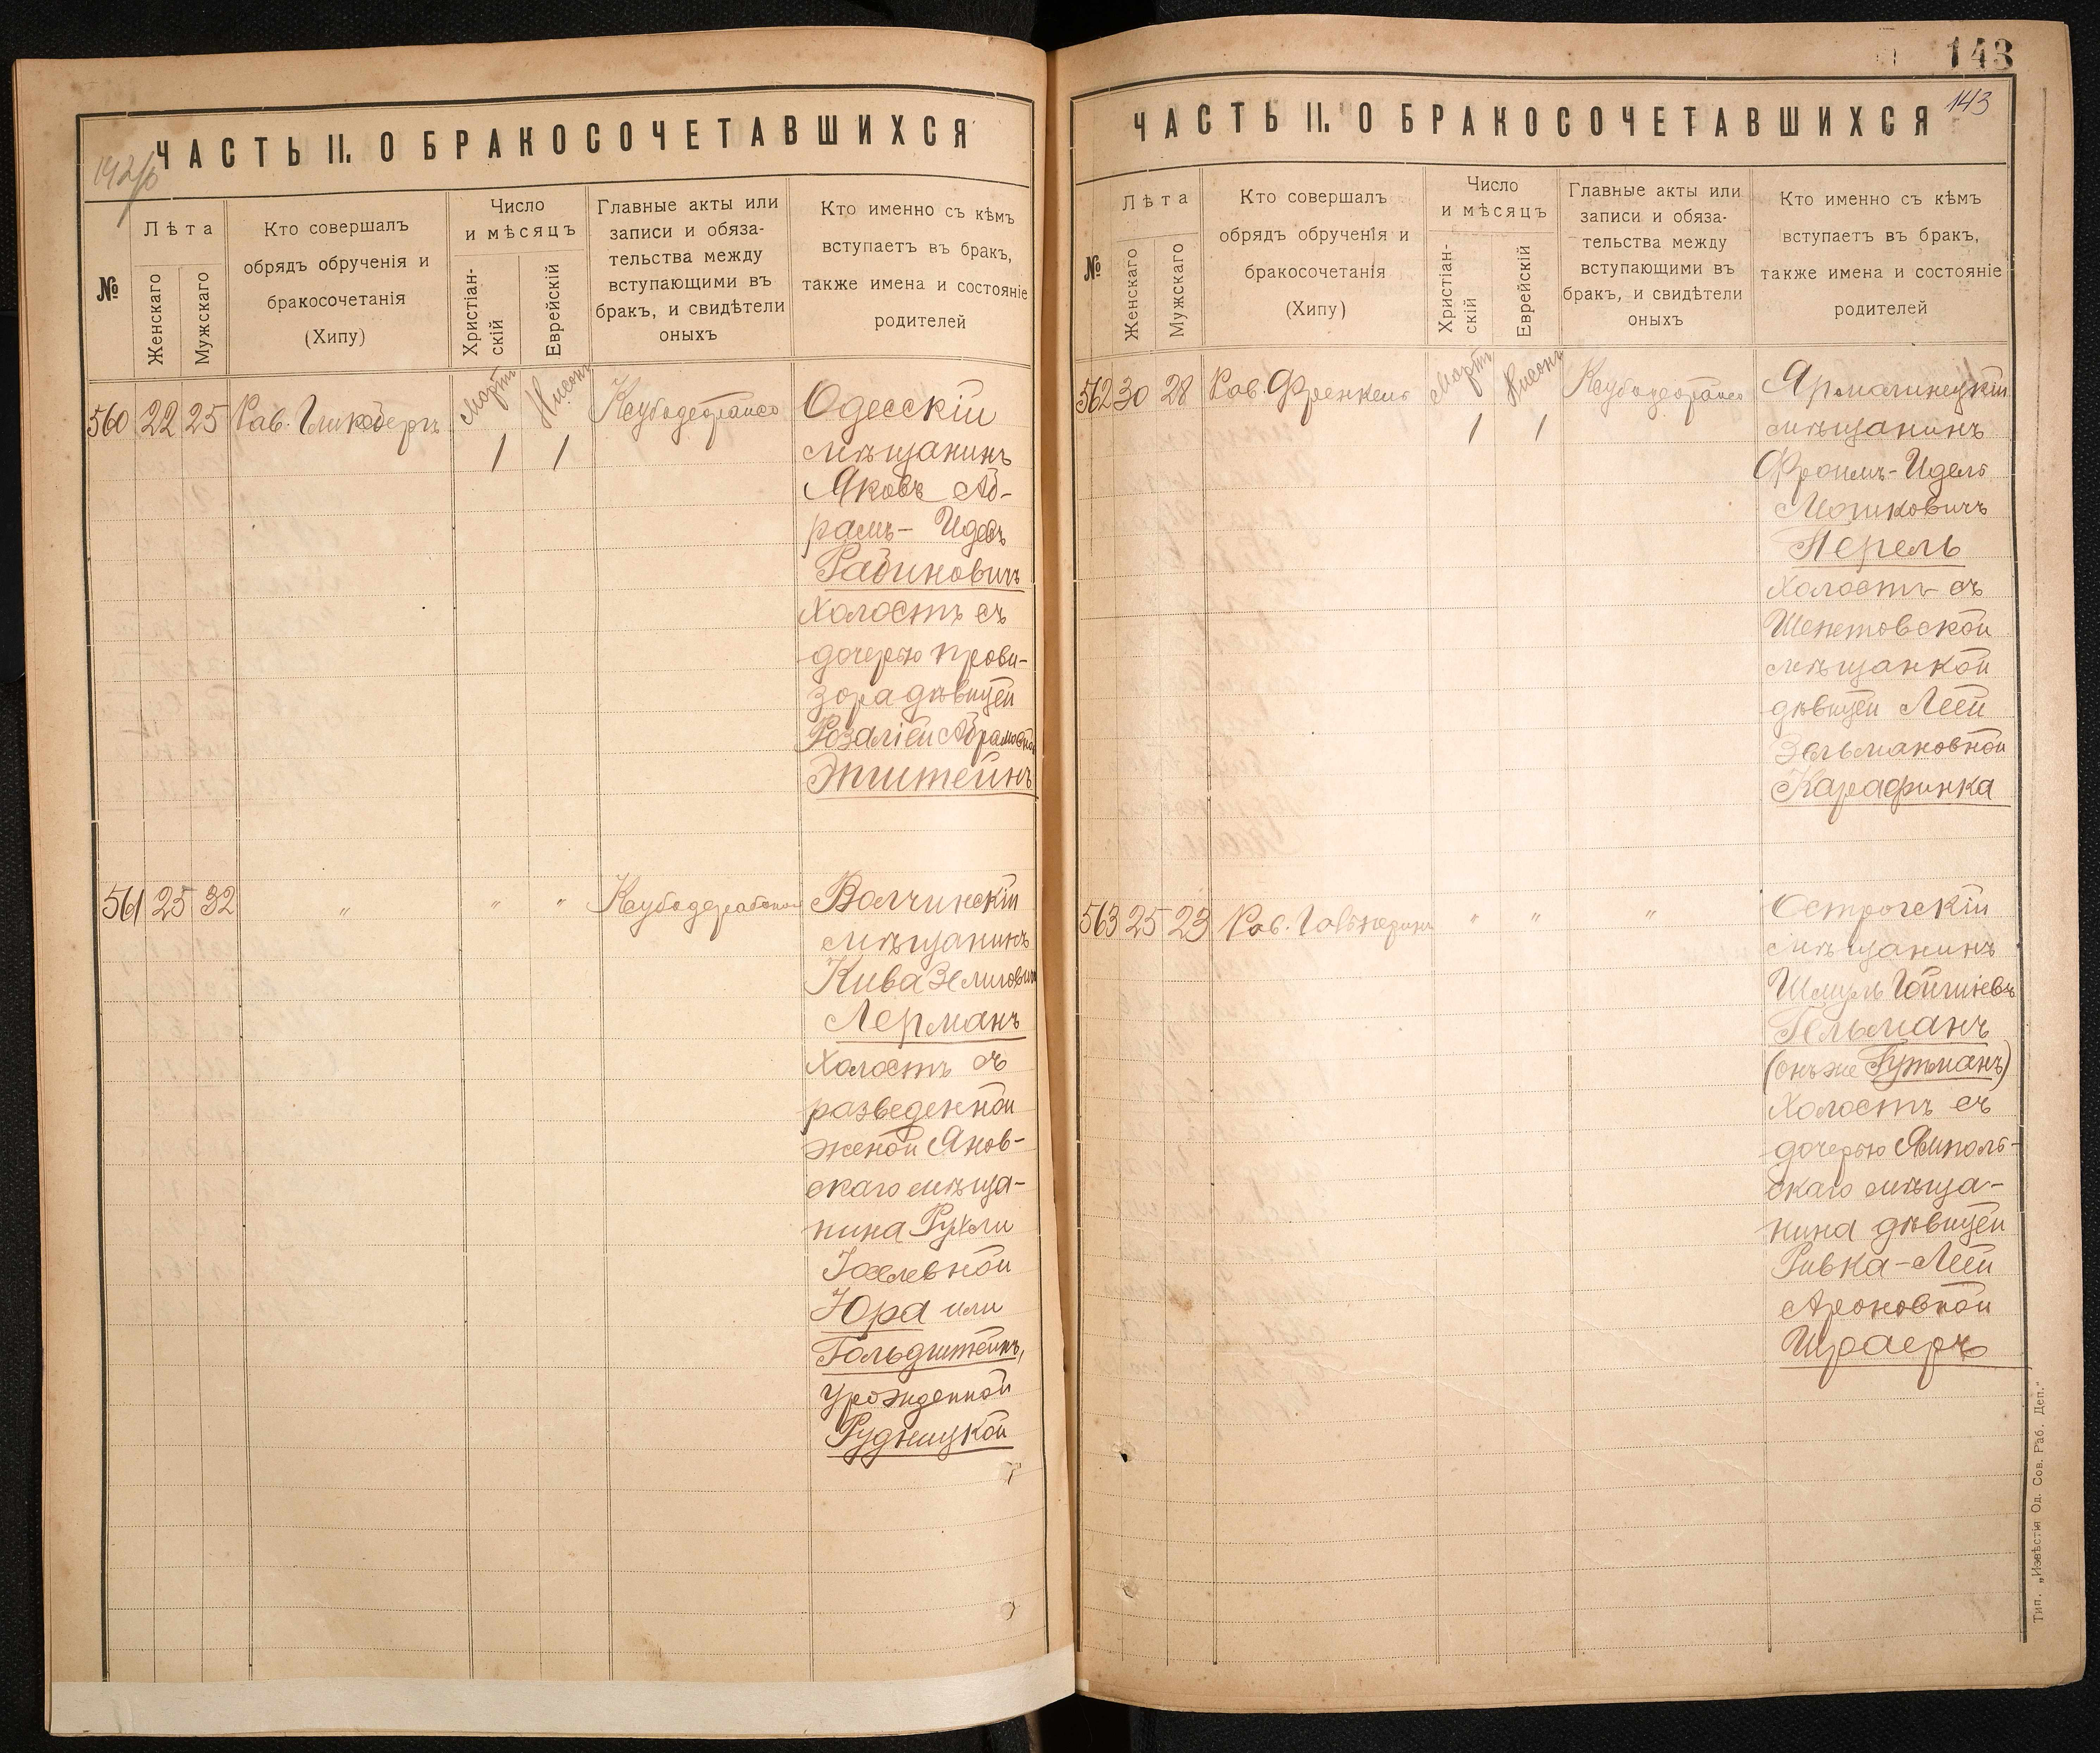 142/б
ЧАСТЬ II. О БРАКОСОЧЕТАВШИХСЯ
№
Лѣта
Женскаго
Мужскаго
Кто совершалъ
обрядъ обрученія и
бракосочетанія
(Хипу)
Число
и мѣсяцъ
Христіан-
скій
Еврейскій
Главные акты или
записи и обяза-
тельства между
вступающими въ
бракъ, и свидѣтели
оныхъ
Кто именно съ кѣмъ
вступаетъ въ бракъ,
также имена и состояніе
родителей
560 22 25 Рав. Гликсбергъ Мартъ 1 Нисонъ 1
Одесскій
мѣщанинъ
Яковъ Аб-
рамъ- Идовъ
Рабиновичъ
холостъ съ
дочерью прови-
зора дѣвицей
Розаліей Абрамовной
Эпштейнъ
561 25 32 " " "
Волчинскій
мѣщанинъ
Кива Зелиговичъ
Лерманъ
холостъ съ
разведенной
женой Янов-
скаго мѣща-
нина Рухли
Іоселевной
Юра или
Гольдштейнъ,
урожденной
Рудницкой
143
143
ЧАСТЬ II. О БРАКОСОЧЕТАВШИХСЯ
№
Лѣта
Женскаго
Мужскаго
Кто совершалъ
обрядъ обрученія и
бракосочетанія
(Хипу)
Число
и мѣсяцъ
Христіан-
скій
Еврейскій
Главные акты или
записи и обяза-
тельства между
вступающими въ
бракъ, и свидѣтели
оныхъ
Кто именно съ кѣмъ
вступаетъ въ бракъ,
также имена и состояніе
родителей
562 30 28 Рав. Френкель Мартъ 1 Нисонъ 1
Ярмолинецкій
мѣщанинъ
Фроимъ-Идель
Мошковичъ
Перель
холостъ съ
Шепетовской
мѣщанкой
дѣвицей Леей
Зельмановной
Карафинка
563 25 23 Рав. Гальперинъ " " "
Острогскій
мѣщанинъ
Шмуль
Гельманъ
(онъ же Гутманъ)
холостъ съ
дочерью Ямполь-
скаго мѣща-
нина дѣвицей
Ривка-Леей
Ароновной
Шраеръ
Тип. „Извѣстія Од. Сов. Раб. Деп."